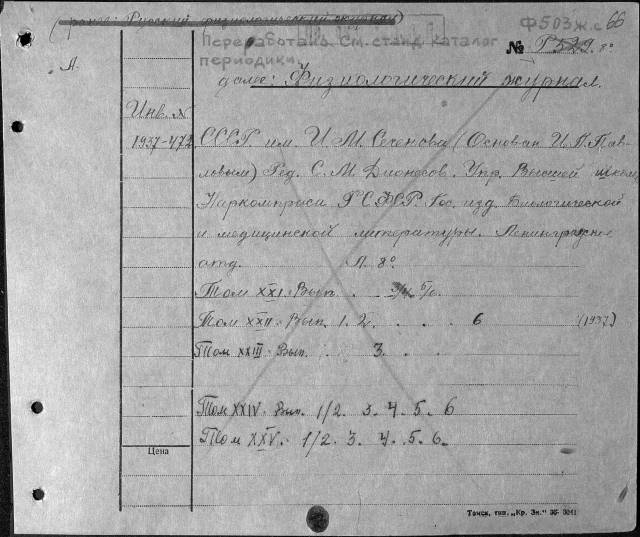 (ранее: Русский физиологический журнал)
Ф503ж.с 66
Переработано. См. станд. каталог
периодики.
№ Р529. 8°
А.
далее: Физиологический журнал.
Инв. №
1937-472
СССР им. И. М. Сеченова (Основан И. П. Пав-
ловым) Ред. С. М. Дионесов. Упр. Высшей школы
Наркомпроса РСФСР. Гос. изд. Биологической
и медицинской литературы. Ленинградское
отд. Л. 8°
Том XXI. Вып. 3/4 5/6.
Том XXII. Вып. 1. 2. . . . 6 (1937)
Том XXIII. Вып. . 3. . .
Том XXIV. Вып. 1/2. 3. 4. 5. 6
Том XXV. 1/2. 3. 4. 5. 6.
Цена
Томск, тип. „Кр. Зн." 36 3041